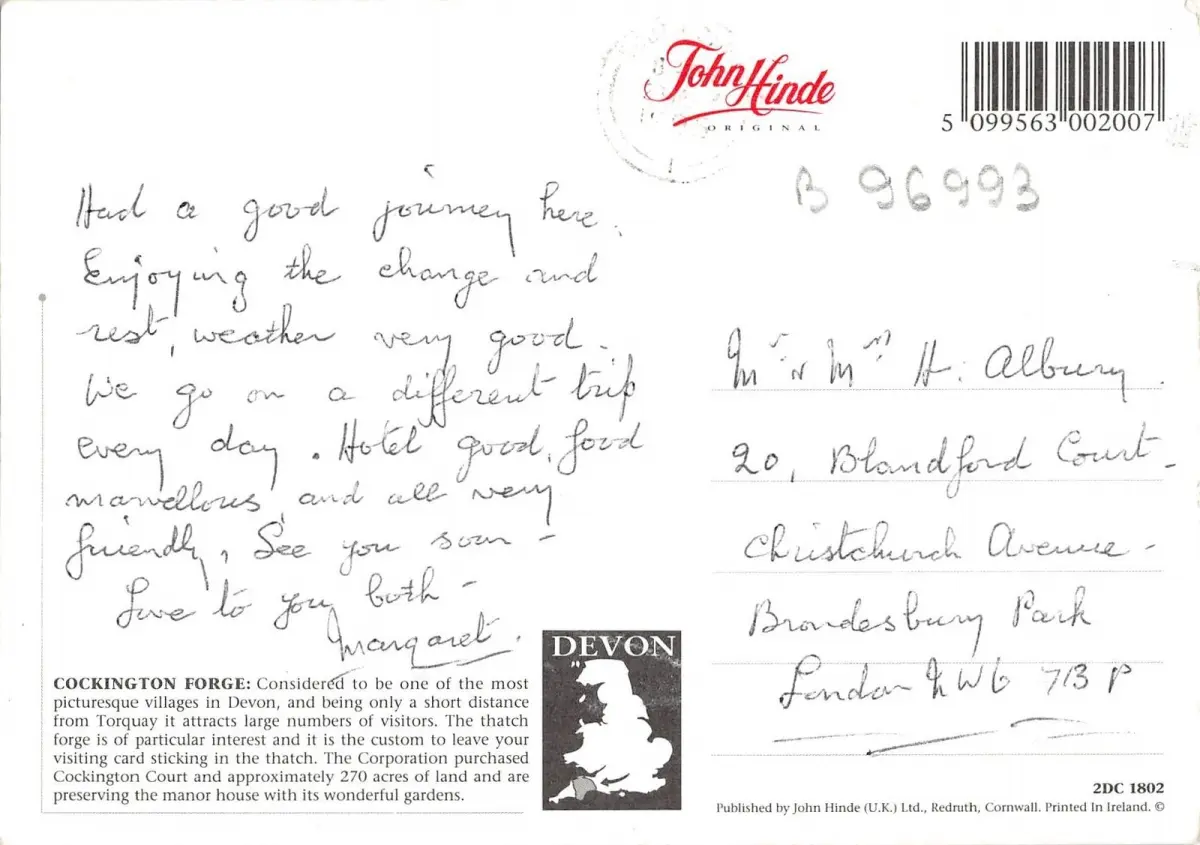 John Hinde
ORIGINAL
5 099563 002007
B 96993
Had a good journey here.
Enjoying the change and
rest, weather very good.
We go on a different trip
every day. Hotel good, food
marvellous, and all very
friendly, See you soon -
Love to you both -
Margaret.
Mr & Mrs H. Albury.
20, Blandford Court -
Christchurch Avenue -
Brondesbury Park
London NW6 7BP
COCKINGTON FORGE: Considered to be one of the most
picturesque villages in Devon, and being only a short distance
from Torquay it attracts large numbers of visitors. The thatch
forge is of particular interest and it is the custom to leave your
visiting card sticking in the thatch. The Corporation purchased
Cockington Court and approximately 270 acres of land and are
preserving the manor house with its wonderful gardens.
DEVON
2DC 1802
Published by John Hinde (U.K.) Ltd., Redruth, Cornwall. Printed In Ireland. ©